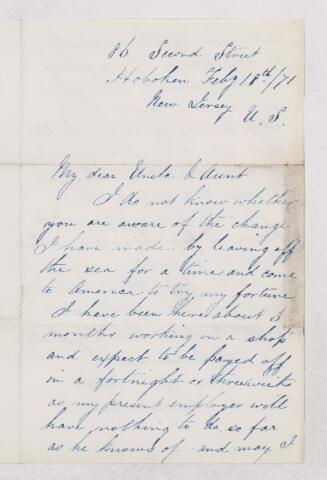 86 Second Street
Hoboken Feby 18th/71
New Jersey
U. S.
My dear Uncle & Aunt
I do not know whether
you are aware of the change
I have made by leaving off
the sea for a time and come
to America to try my fortune
I have been here about 3
months working in a shop
and expect to be payed off
in a fortnight or three weeks
as my present employer will
have nothing to do, so far
as he knows of and may I